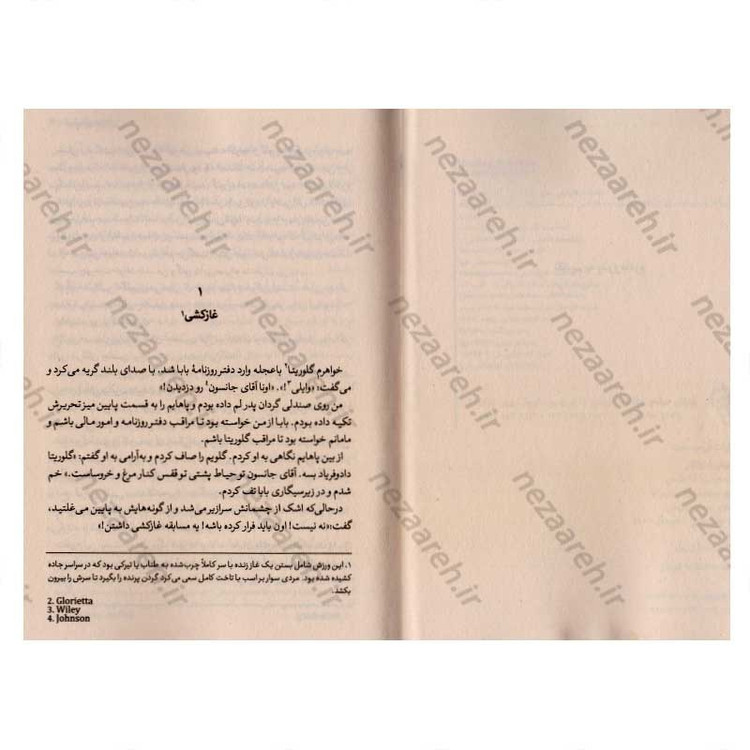 ۱
غازکشی۱
خواهرم گلوریتا۲ باعجله وارد دفتر روزنامهٔ بابا شد. با صدای بلند گریه می‌کرد و
می‌گفت: «وایلی۳!». «اونا آقای جانسون۴ رو دزدیدن!»
من روی صندلی گردان پدر لم داده بودم و پاهایم را به قسمت پایین میز تحریرش
تکیه داده بودم. بابا از من خواسته بود تا مراقب دفتر روزنامه و امور مالی باشم و
مامانم خواسته بود تا مراقب گلوریتا باشم.
از بین پاهایم نگاهی به او کردم. گلویم را صاف کردم و به‌آرامی به او گفتم: «گلوریتا
دادوفریاد بسه. آقای جانسون تو حیاط پشتی تو قفس کنار مرغ و خروساست.» خم
شدم و در زیرسیگاری بابا تف کردم.
درحالی‌که اشک از چشمانش سرازیر می‌شد و از گونه‌هایش به پایین می‌غلتید،
گفت: «نه نیست! اون باید فرار کرده باشه! یه مسابقه غازکشی داشتن!»
۱. این ورزش شامل بستن یک غاز زنده با سر کاملاً چرب‌شده به طناب یا تیرکی بود که در سراسر جاده
کشیده شده بود. مردی سوار بر اسب با تاخت کامل سعی می‌کرد گردن پرنده را بگیرد تا سرش را بیرون
بکشد.
2. Glorietta
3. Wiley
4. Johnson
nezaareh.ir
nezaareh.ir
nezaareh.ir
nezaareh.ir
nezaareh.ir
nezaareh.ir
nezaareh.ir
nezaareh.ir
nezaareh.ir
nezaareh.ir
nezaareh.ir
nezaareh.ir